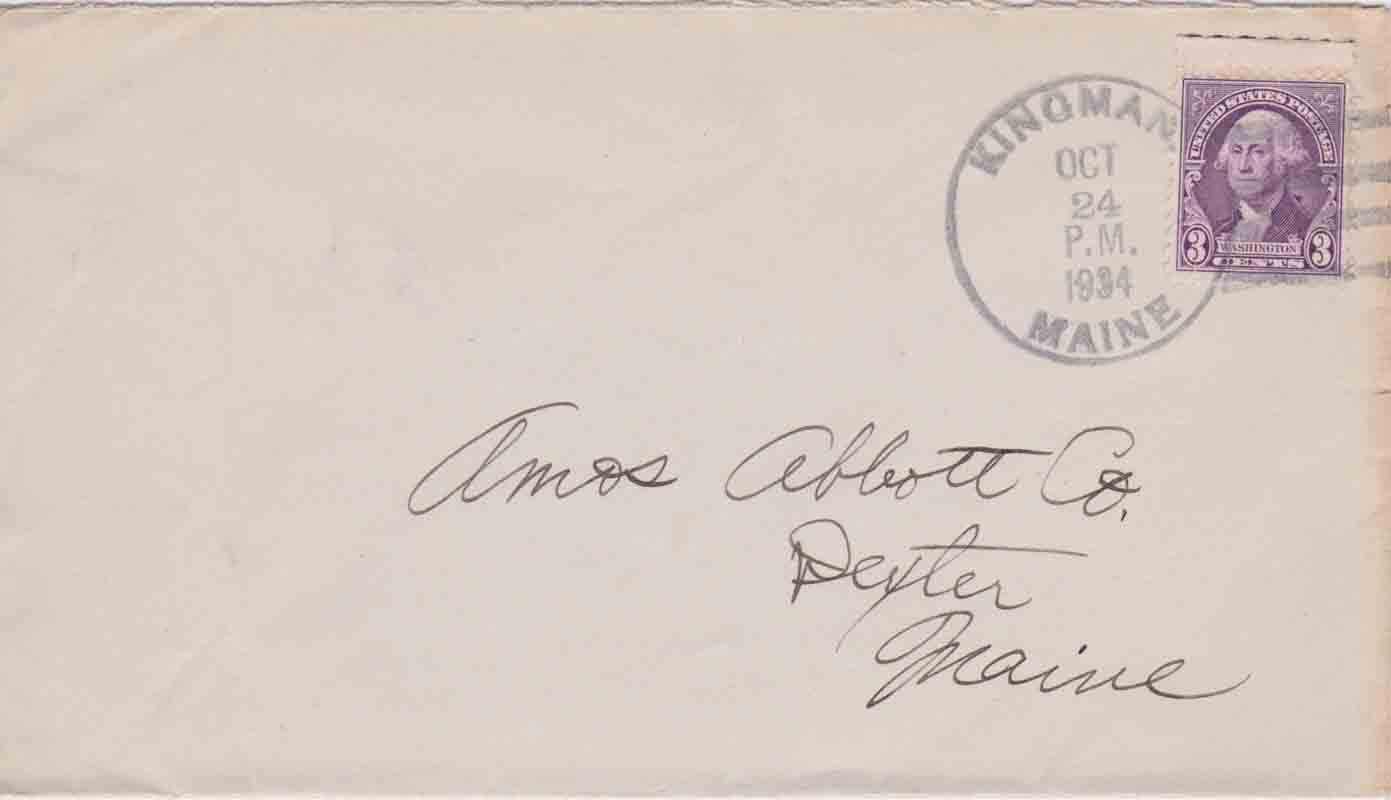 KINGMAN,
OCT
24
P.M.
1934
MAINE
UNITED STATES POSTAGE
3 WASHINGTON 3
CENTS
Amos Abbott Co.
Dexter
Maine